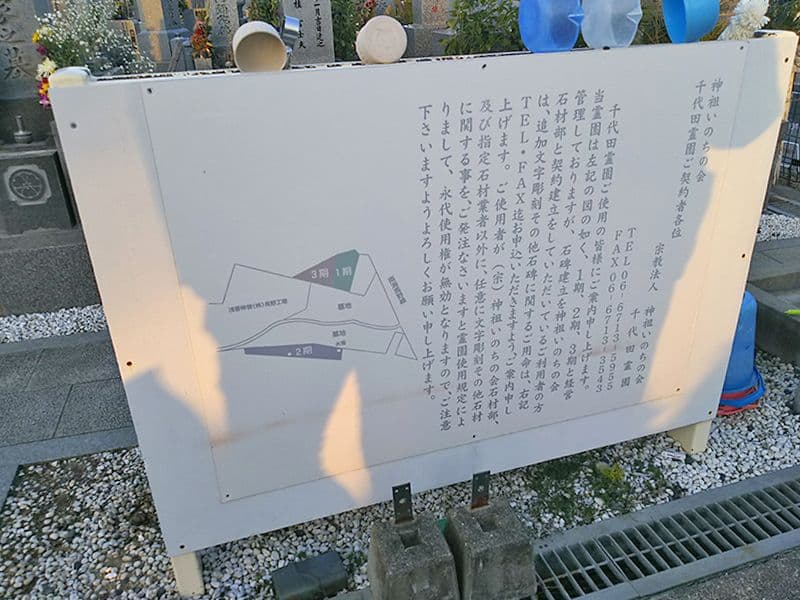 神祖いのちの会
千代田霊園ご契約者各位
宗教法人 神祖いのちの会
千代田霊園
TEL06-6713-5955
FAX06-6713-3543
千代田霊園ご使用の皆様にご案内申し上げます。
当霊園は左記の図の如く、1期、2期、3期と経営
管理しておりますが、石碑建立を神祖いのちの会
石材部と契約建立をしていただいているご利用者の方
は、追加文字彫刻その他石碑に関するご用命は、右記
TEL・FAX迄お申込いただきますよう、ご案内申し
上げます。ご使用者が、(宗)神祖いのちの会石材部、
及び指定石材業者以外に、任意に文字彫刻その他石材
に関する事を、ご発注なさいますと霊園使用規定によ
りまして、永代使用権が無効となりますので、ご注意
下さいますようよろしくお願い申し上げます。
3期
1期
墓地
墓地
2期